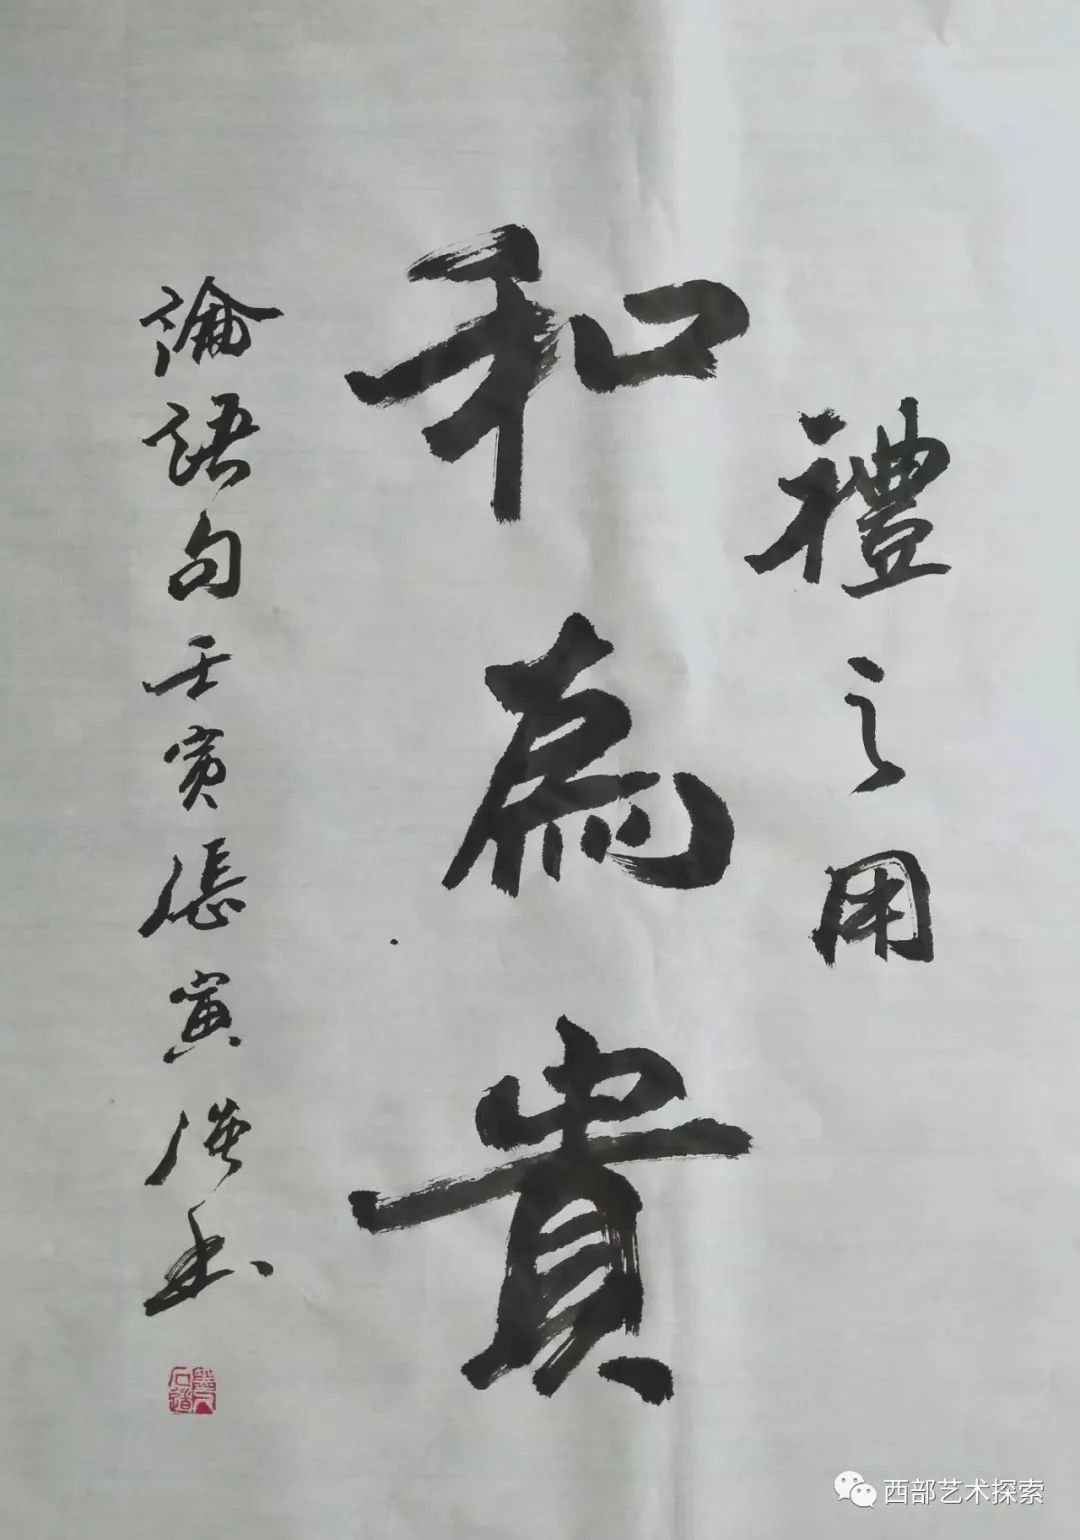 禮之用
和為貴
論語句壬寅張寅書
西部艺术探索